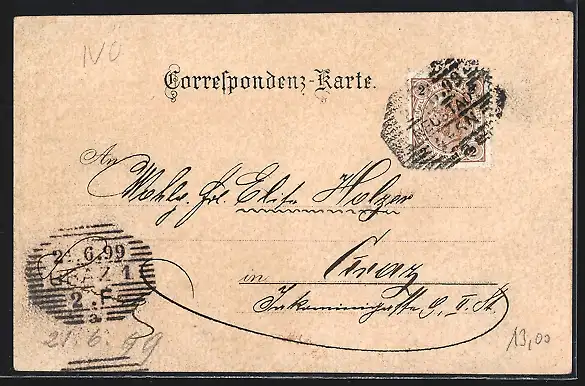 NÖ
Correspondenz-Karte.
2
An
Wohlg. Frl. Elite Holzer
in Graz
Jakominigasse 9, II. St.
21.6.99
GRAZ 1
2.F
a
21.6.99
13,00